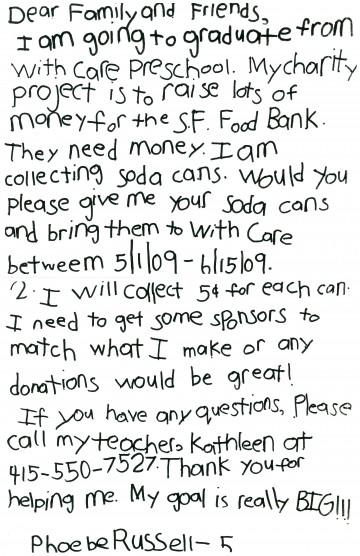 Dear Family and Friends,
I am going to graduate from
With Care Preschool. My charity
project is to raise lots of
money for the S.F. Food Bank.
They need money. I am
collecting soda cans. Would you
Please give me your soda cans
and bring them to With Care
betweem 5/1/09 - 6/15/09.
2. I will collect 5¢ for each can.
I need to get some sponsors to
match what I make or any
donations would be great!
If you have any questions, Please
call my teacher, Kathleen at
415-550-7527. Thank you for
helping me. My goal is really BIG!!!
Phoebe Russell - 5